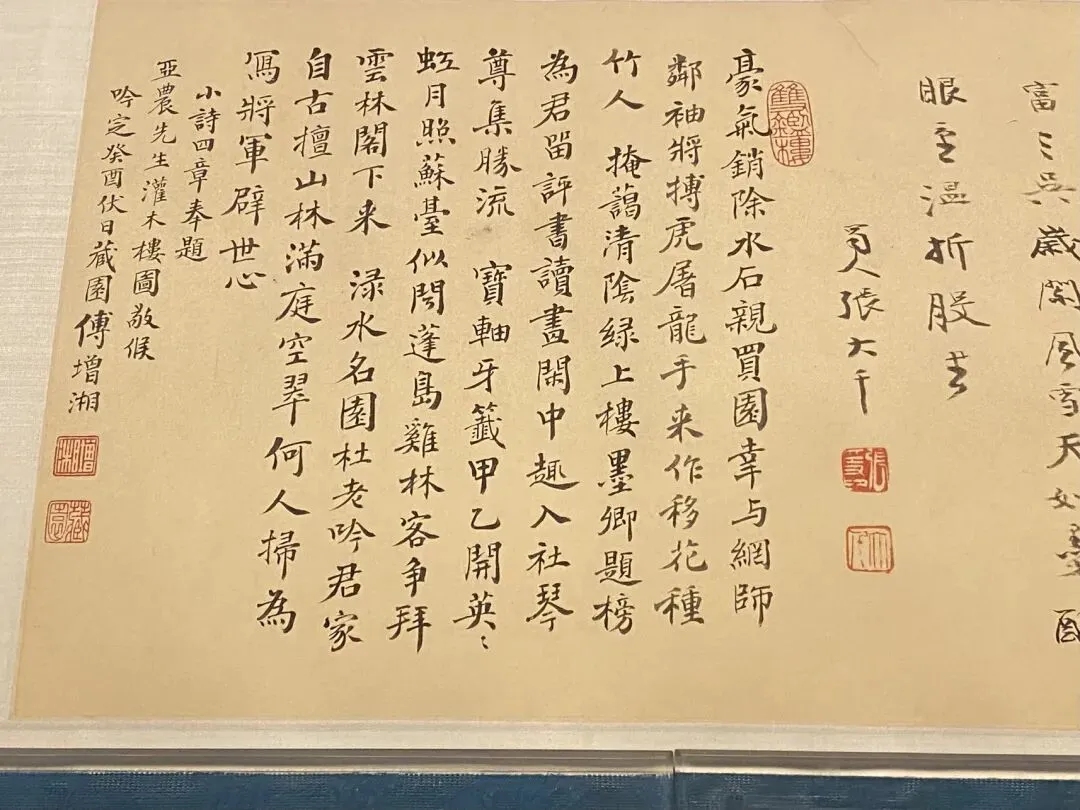 富三吴歲闌風雪天如墨 酌
眼至温折股书
爰人張大千
豪氣銷除水石親買園幸与網師
鄰袖將搏虎屠龍手来作移花種
竹人 掩藹清陰緑上樓墨卿題榜
為君留評書讀畫閑中趣入社琴
尊集勝流 寶軸牙籤甲乙開英〻
虹月照蘇臺似聞蓬島雞林客争拜
雲林閣下来 渌水名園杜老吟君家
自古擅山林滿庭空翠何人掃為
寫將軍辟世心
小詩四章奉題
亞農先生灌木樓圖敬候
吟定癸酉伏日藏園傅增湘
雙鑑樓
張爰
大千
增湘
藏園